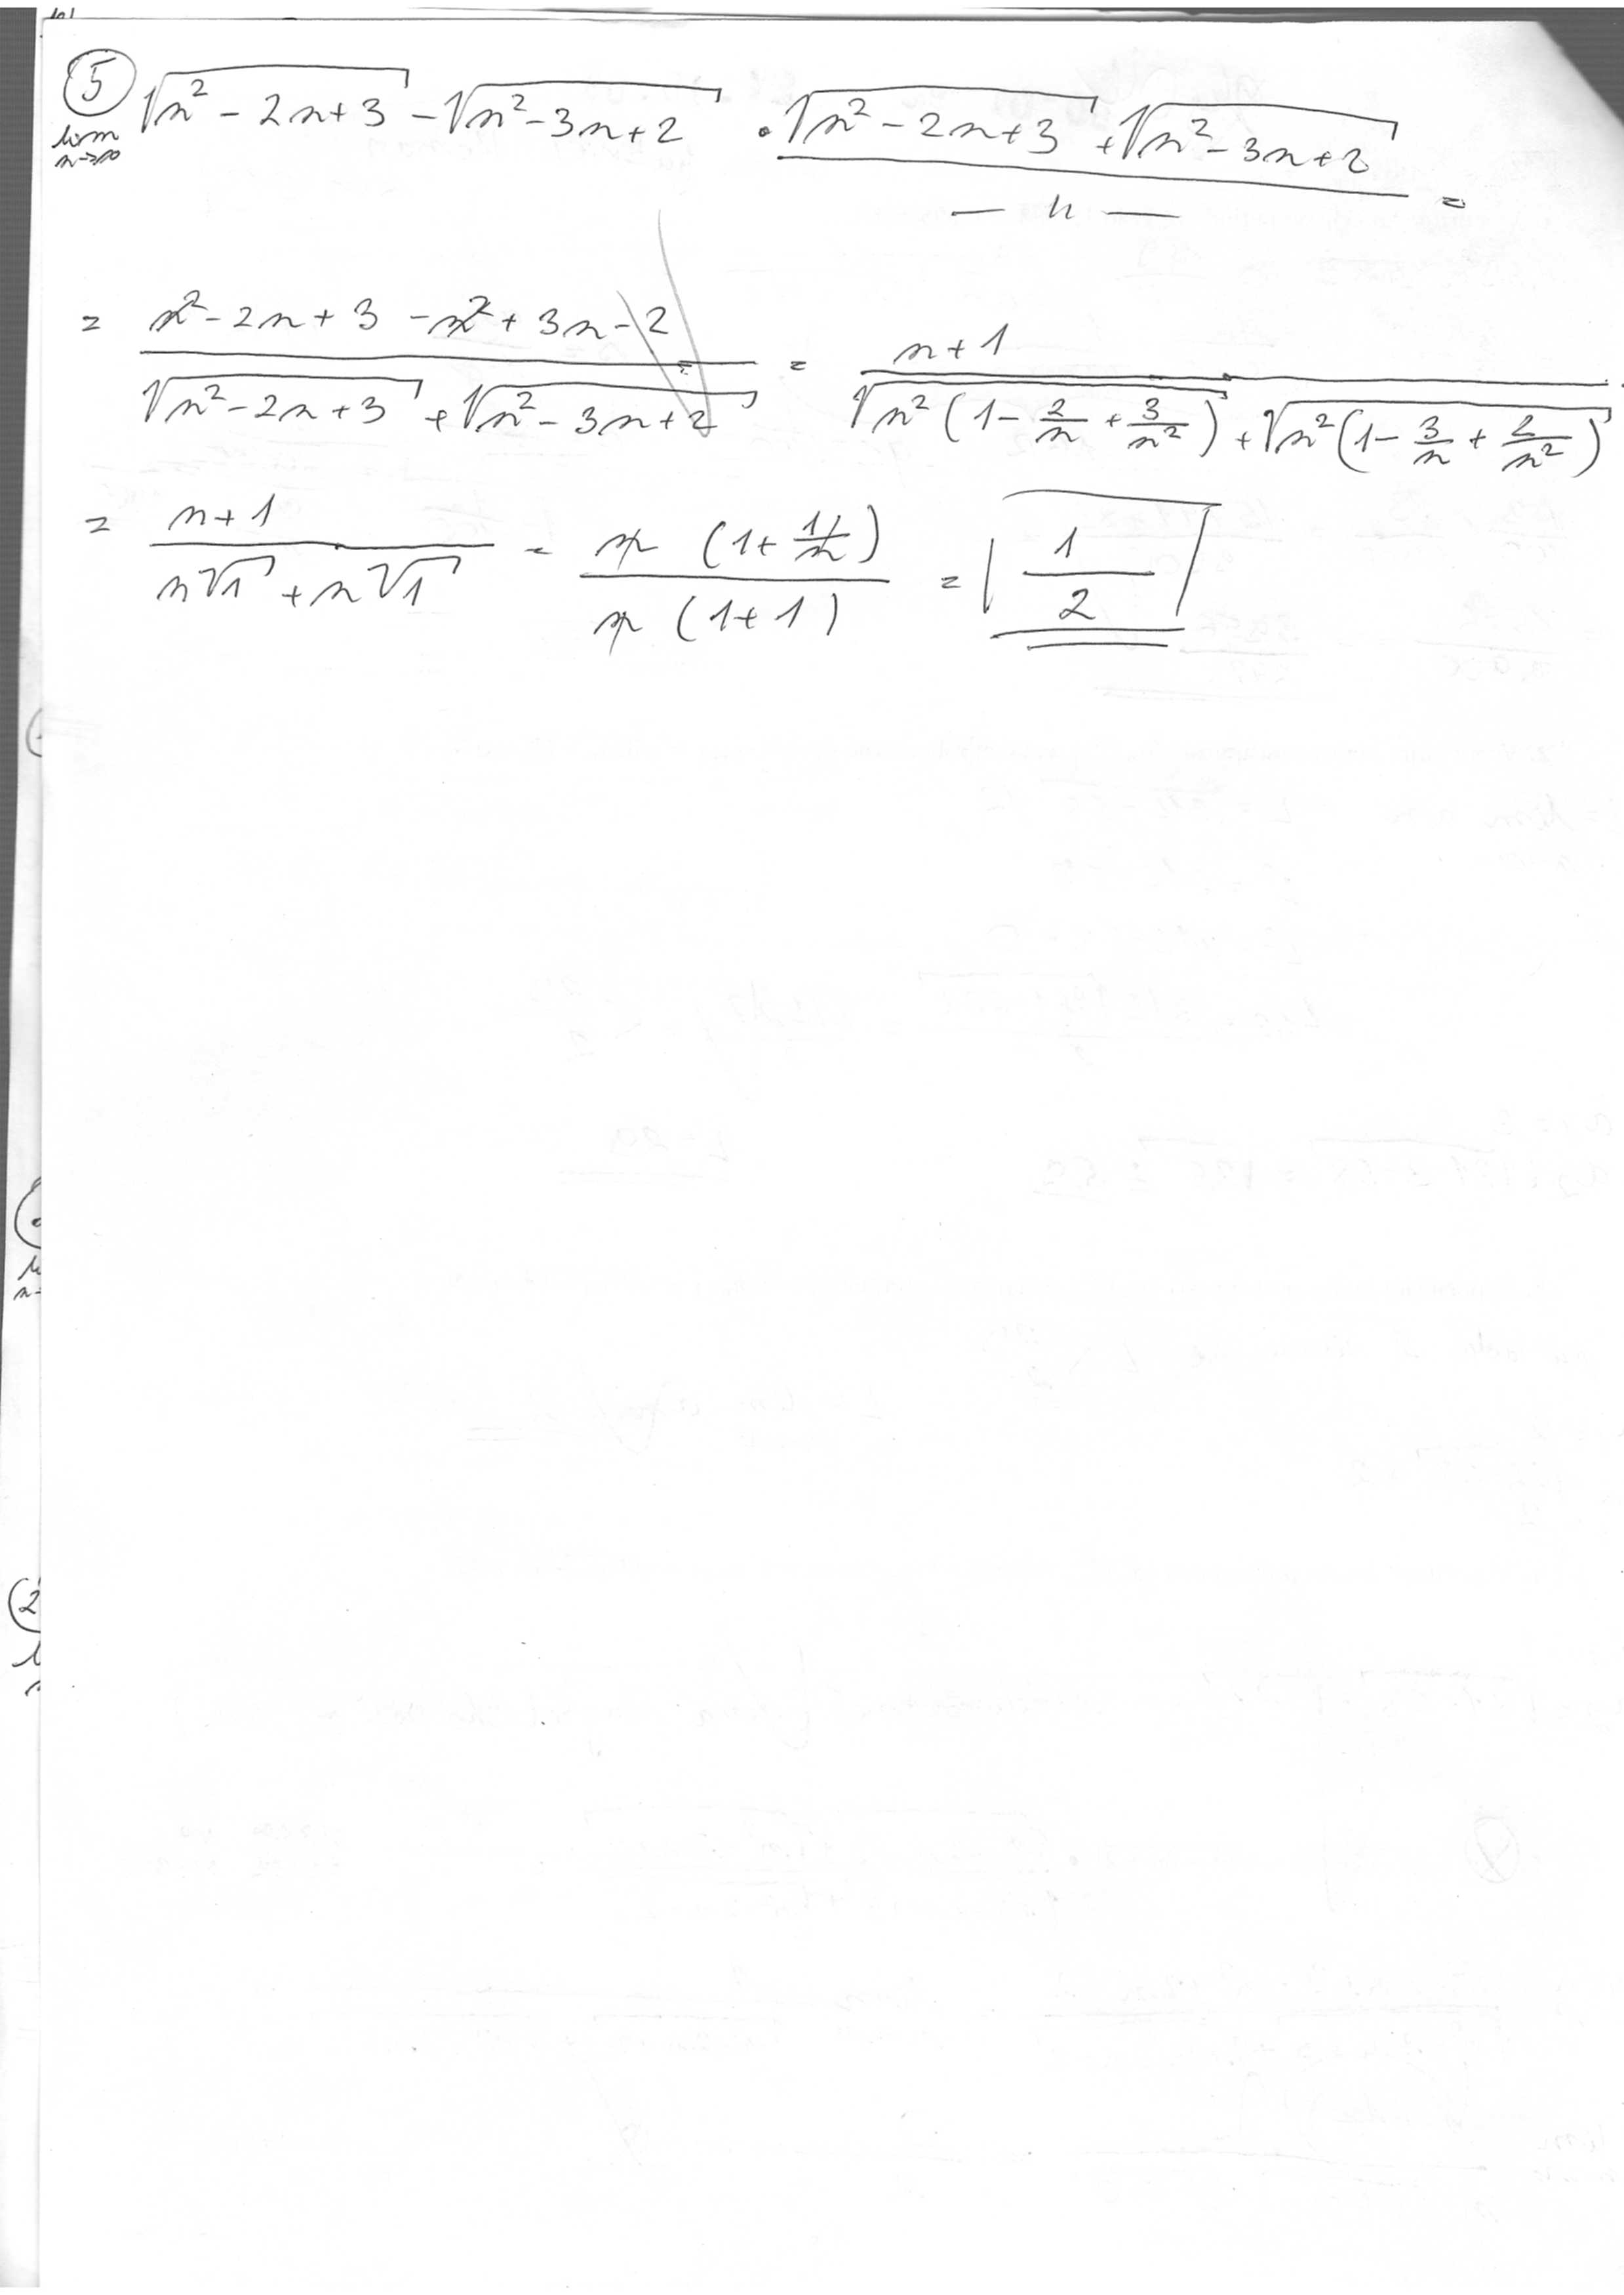 ⑤ lim n→∞ √(n² - 2n + 3) - √(n² - 3n + 2) · (√(n² - 2n + 3) + √(n² - 3n + 2)) / — 11 — =
= (n² - 2n + 3 - n² + 3n - 2) / (√(n² - 2n + 3) + √(n² - 3n + 2)) = (n + 1) / (√(n² (1 - 2/n + 3/n²)) + √(n² (1 - 3/n + 2/n²)))
= (n + 1) / (n√1 + n√1) = n (1 + 1/n) / n (1 + 1) = 1/2